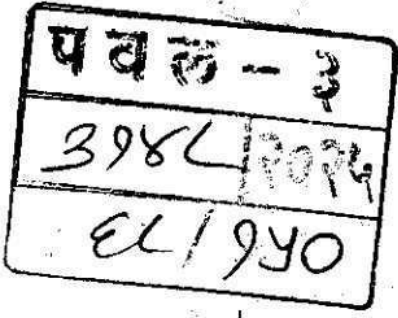 पवल - ३
३१४८ २०२५
६८/१५०